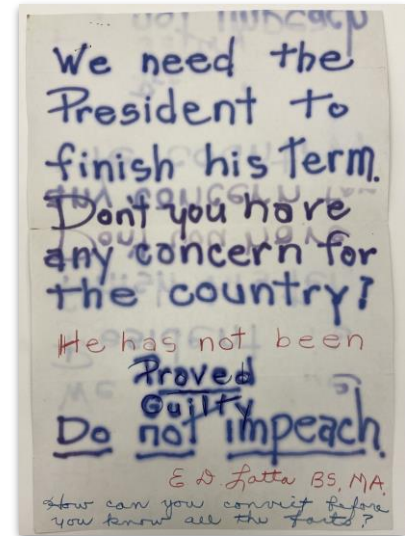 We need the
President to
finish his term.
Don't you have
any concern for
the country?
He has not been
Proved
Guilty
Do not impeach.
E D. Latta BS, MA.
How can you convict before
you know all the facts?